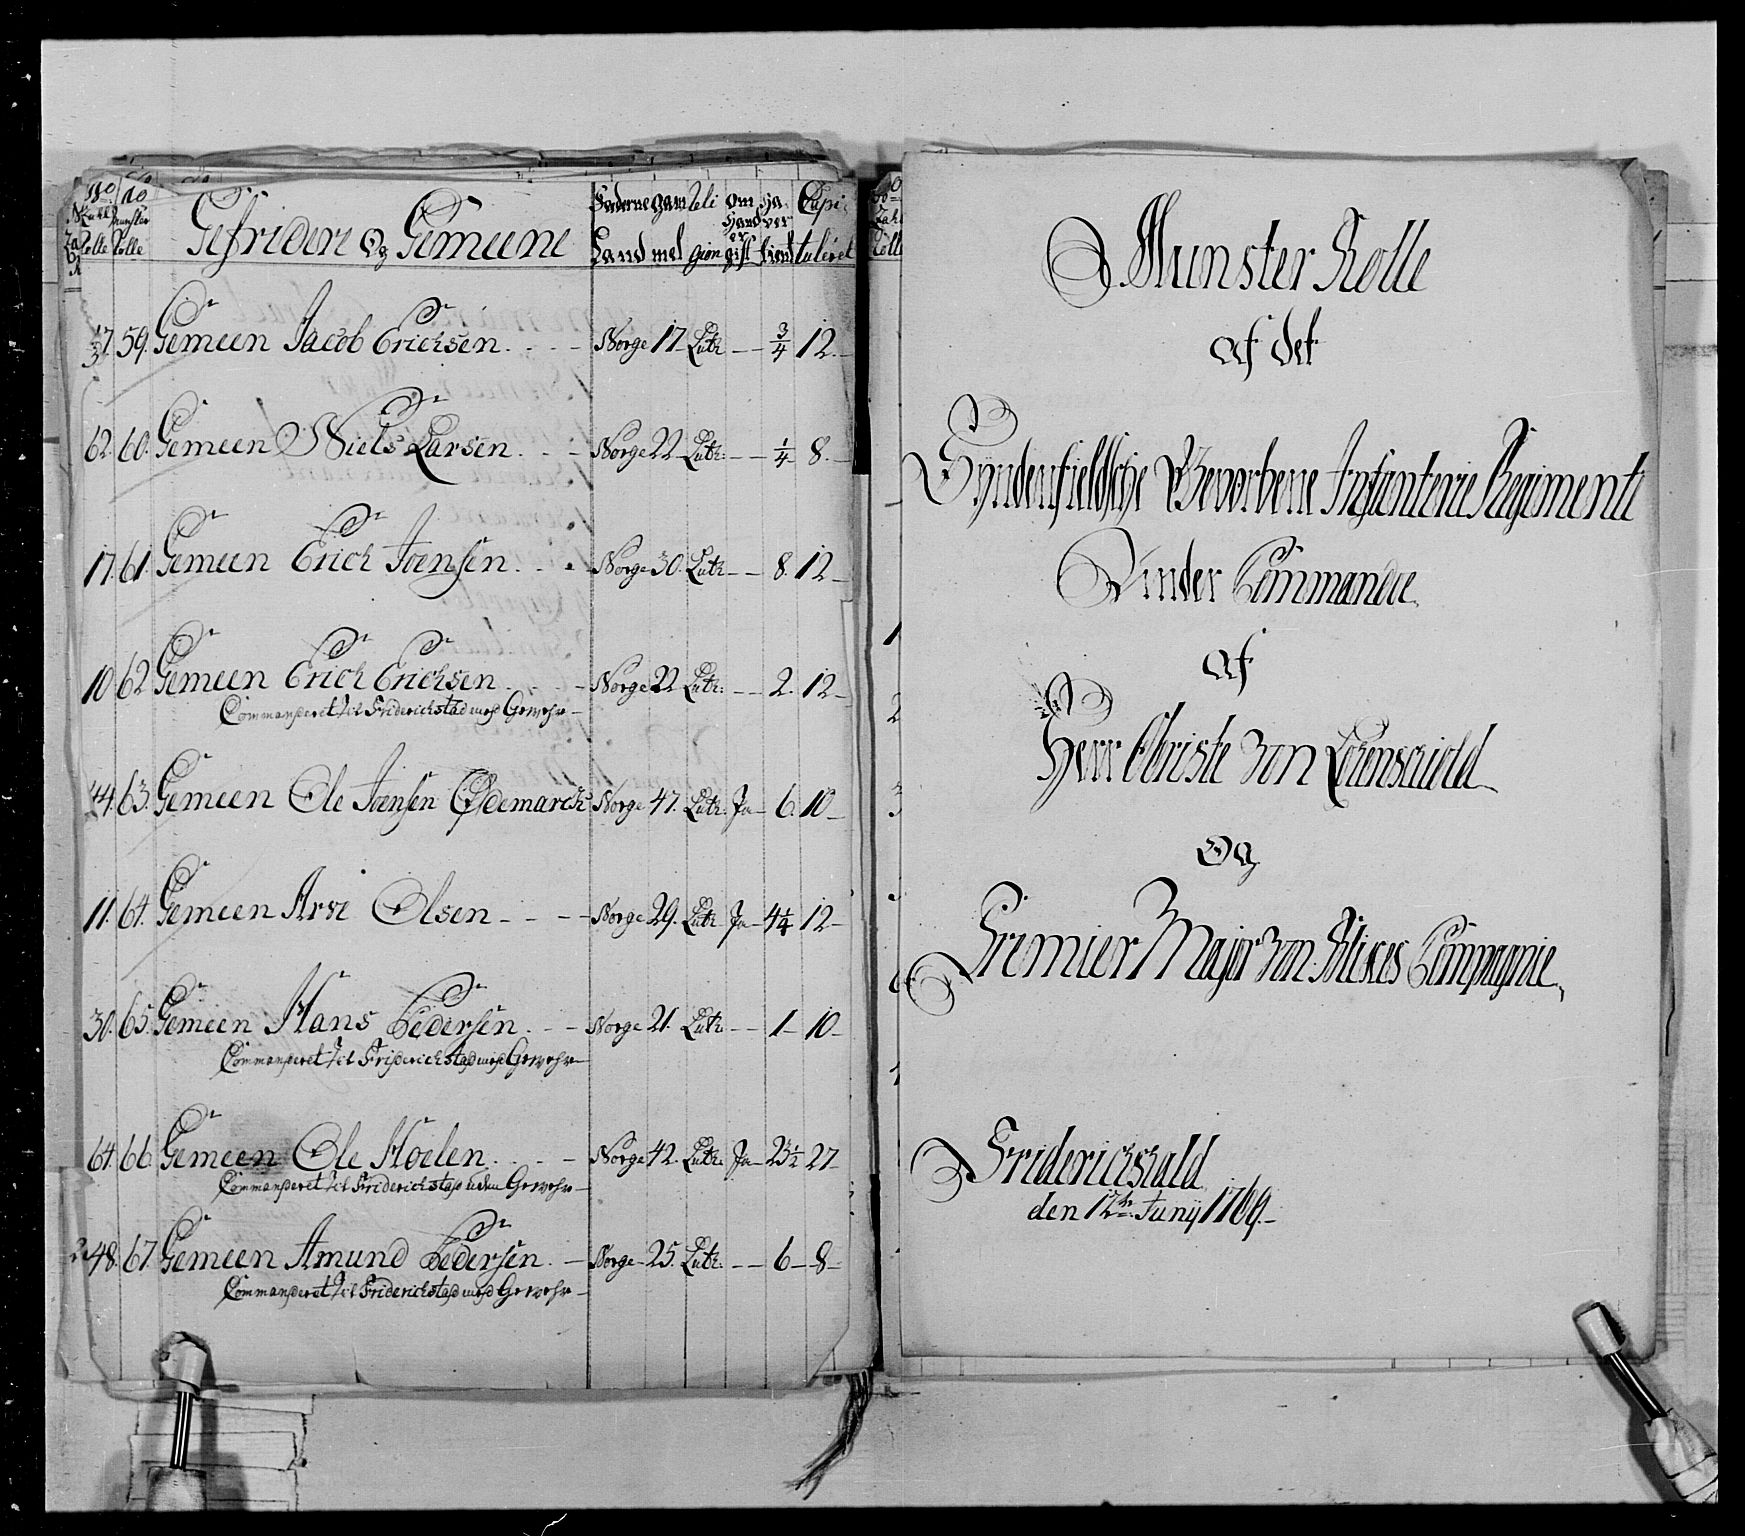 No No
Rulle Munster
Rolle Rolle
Gefridere Og Gemeene
Faderne gam Reli om ha Capi
Land mel gion gift tient tuleret
59. Gemeen Jacob Erichsen. Norge 17 Luth — 3/4 12.
62. 60. Gemeen Niels Larsen. Norge 22 Luth: — 1/4 8.
17. 61. Gemeen Erich Joensen. Norge 30. Luth — 8. 12
10 62 Gemeen Erich Erichsen Norge 22 Luth: — 2. 12
Commanderet til Friderichstad med Gewehr
44. 63. Gemeen Ole Joensen Ødemarck Norge 47. Luth: Ja 6. 10
11. 64. Gemeen Arve Olsen Norge 29. Luth Ja 4 1/4 12
30. 65. Gemeen Hans Pedersen. Norge 21. Luth — 1 10
Commanderet til Friderichstad med Gewehr
64. 66. Gemeen Ole Hoelen. Norge 42. Luth: Ja 23 1/2 27
Commanderet til Friderichstad uden Gewehr
48. 67. Gemeen Amund Pedersen. Norge 25. Luth: — 6 8
Commanderet til Friderichstad med Gewehr
Munster Rolle
af det
Syndenfieldsche Gevorbene Infanterie Regiment
Under Commando
af
Herr Obriste von
Og
Premier Major von Blixes Compagnie,
Friderichshald
den 12te Junij 1769.